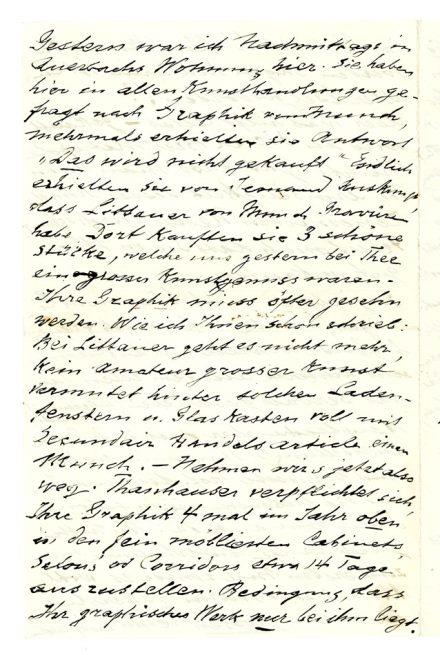 Gestern war ich Nachmittags in
Auerbachs Wohnung hier. Sie haben
hier in allen Kunsthandlungen ge-
fragt nach Graphik von Munch,
mehrmals erhielten sie Antwort
„Das wird nicht gekauft“ Endlich
erhielten sie von Jemand Auskunft
dass Littauer von Munch Gravüren
habe. Dort kauften sie 3 schöne
Stücke, welche uns gestern bei Thee
ein grosser Kunstgenuss waren.
Ihre Graphik muss öfter gesehn
werden. Wie ich Ihnen schon schrieb:
Bei Littauer geht es nicht mehr,
Kein Amateur grosser Kunst
vermutet hinter solchen Laden-
fenstern u. Glaskasten voll mit
Secundair Handels article einen
Munch. – Nehmen wir's jetzt also
weg. Thannhauser verpflichtet sich,
Ihre Graphik 4 mal im Jahr oben,
in den fein möblierten Cabinets,
Salons, od Corridors etwa 14 Tage
auszustellen. Bedingung, dass
Ihr graphisches Werk nur bei ihm liegt.